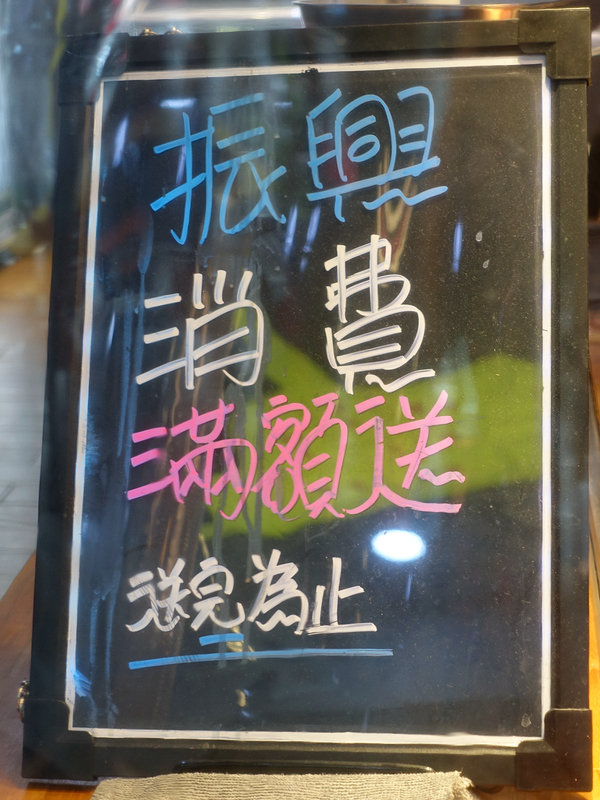 振興
消費
滿額送
送完為止